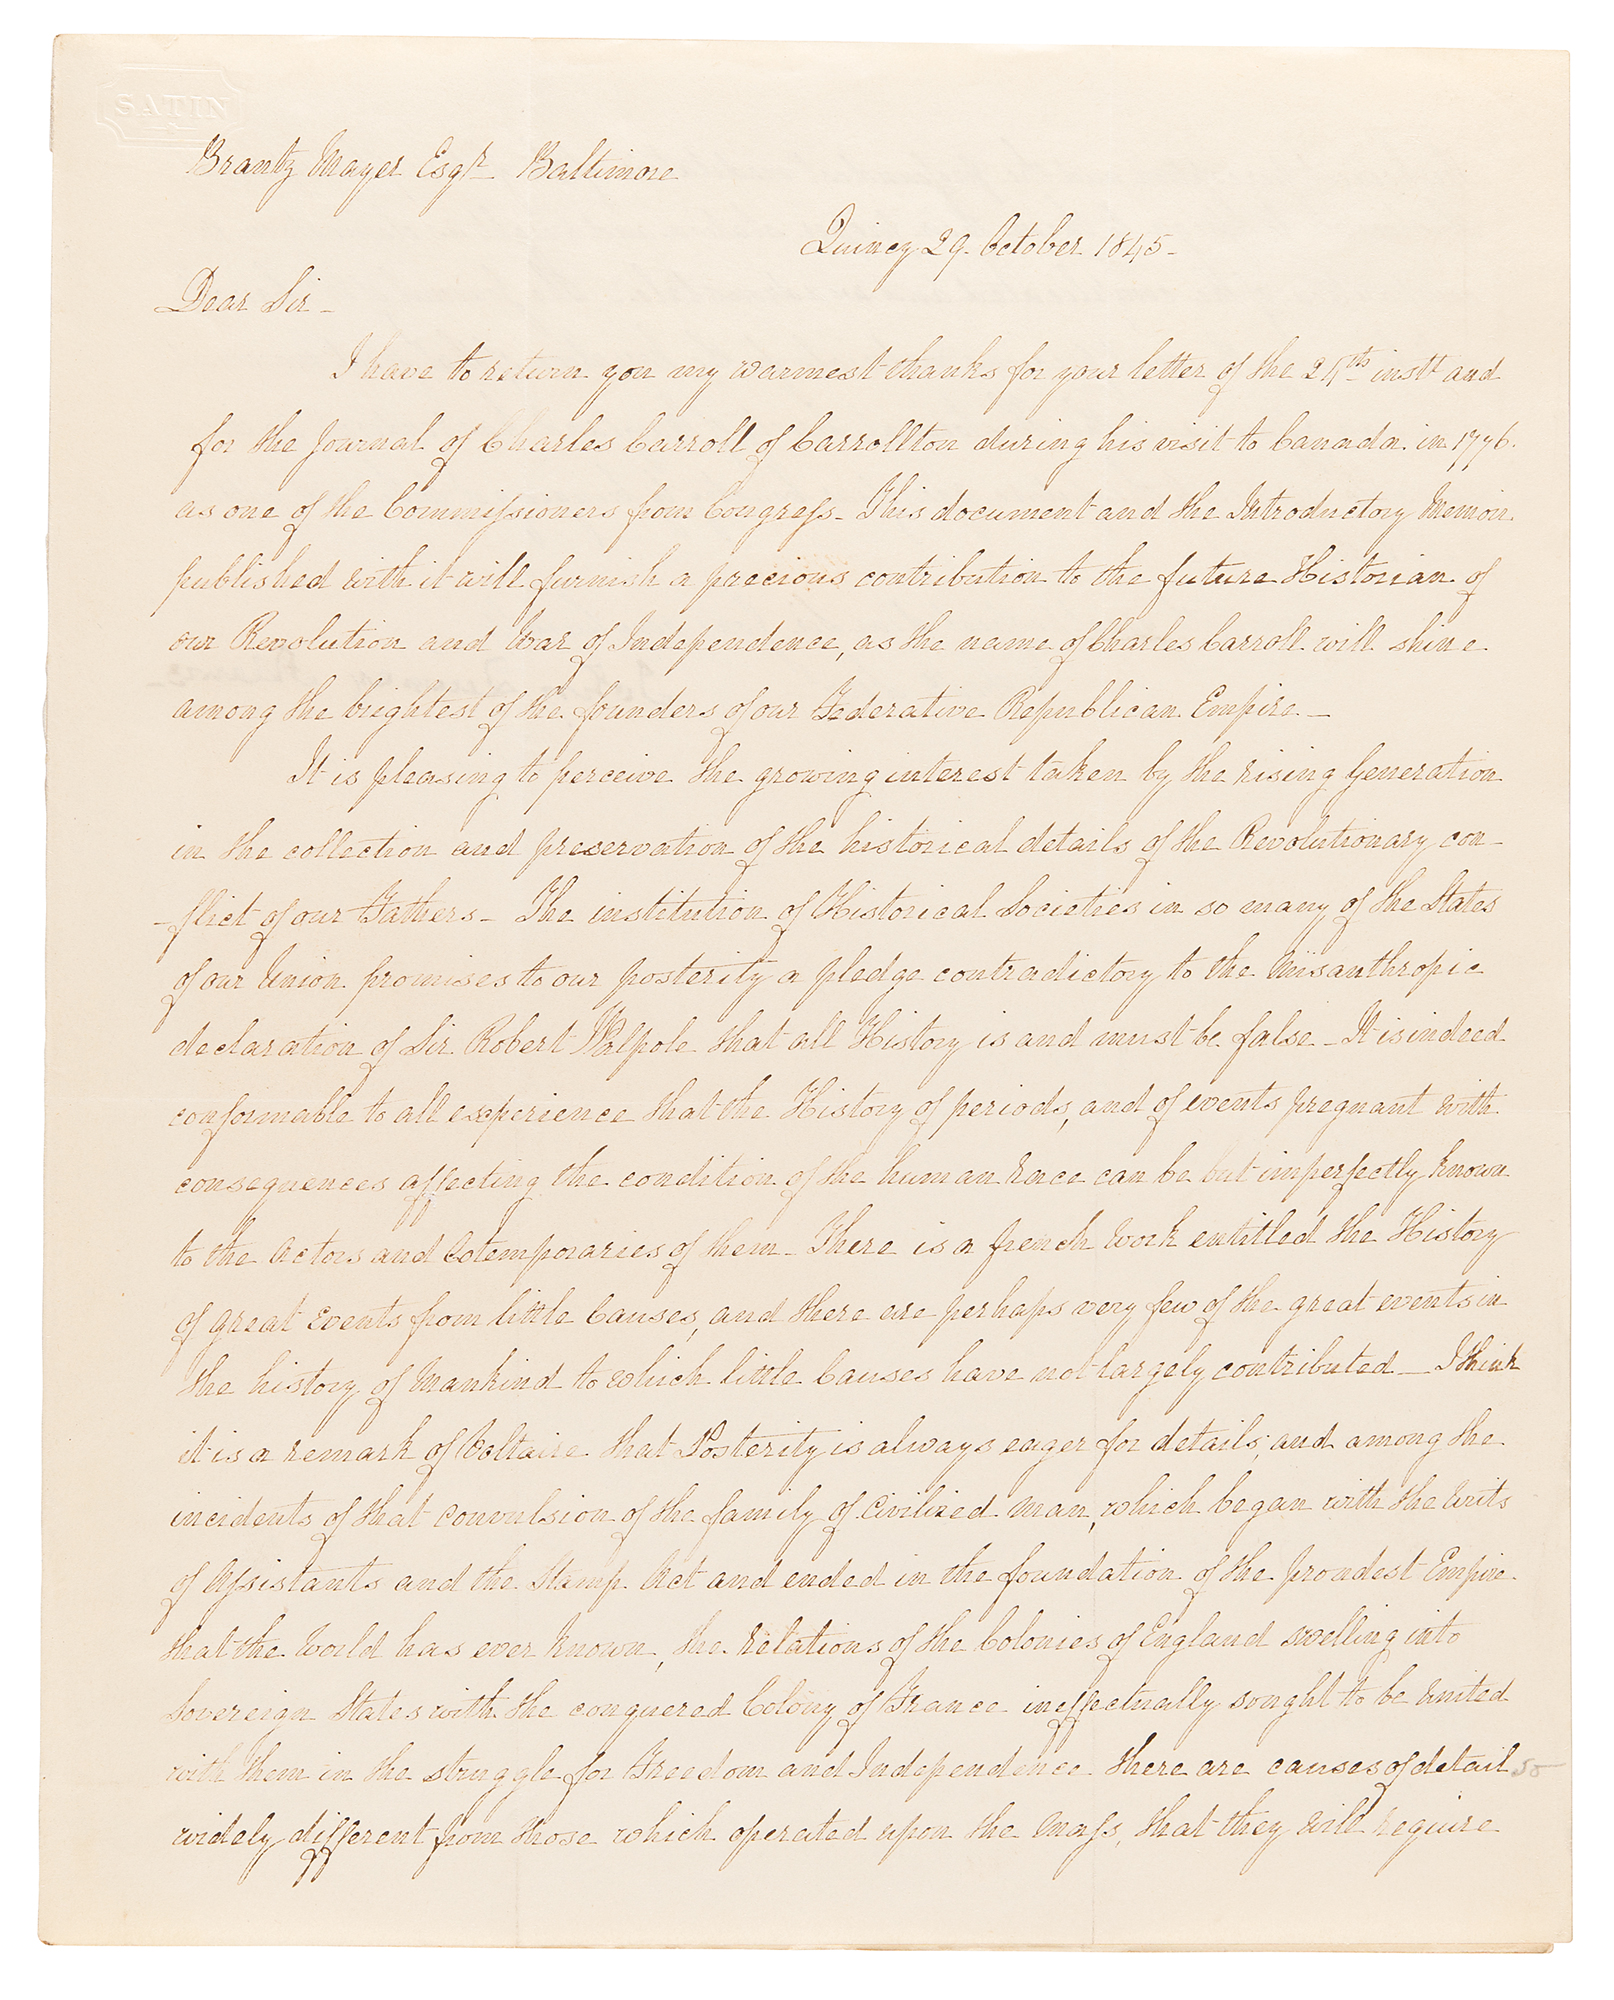 SATIN
Brantz Mayer Esqr. Baltimore
Quincy 29. October 1845-
Dear Sir-
I have to return you my warmest thanks for your letter of the inst. and
for the Journal of Charles Carroll of Carrollton during his visit to Canada in 1776.
as one of the Commissioners from Congress- This document and the Introductory Memoir
published with it will furnish a precious contribution to the future Historian of
our Revolution and War of Independence, as the name of Charles Carroll will shine
among the brightest of the founders of our Federative Republican Empire.-
It is pleasing to perceive the growing interest taken by the rising Generation
in the collection and preservation of the historical details of the Revolutionary con-
-flict of our Fathers- The institution of Historical Societies in so many of the States
of our Union promises to our posterity a pledge contradictory to the Misanthropic
declaration of Sir Robert Walpole that all History is and must be false- It is indeed
conformable to all experience that the History of periods, and of events pregnant with
consequences affecting the condition of the human Race can be but imperfectly known
to the Actors and Cotemporaries of them- There is a french work entitled the History
of great Events from little Causes, and there are perhaps very few of the great events in
the history of Mankind to which little Causes have not largely contributed- I think
it is a remark of Voltaire that Posterity is always eager for details; and among the
incidents of that convulsion of the family of Civilized man, which began with the writs
of Assistants and the Stamp Act and ended in the foundation of the proudest Empire
that the World has ever known, the Relations of the Colonies of England swelling into
Sovereign States with the conquered Colony of France ineffectually sought to be united
with them in the struggle for Freedom and Independence there are causes of detail so
widely different from those which operated upon the Mass, that they will require